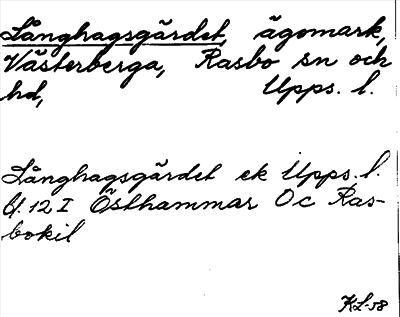 Långhagsgärdet, ägomark,
Västerberga, Rasbo sn och
hd, Upps. l.
Långhagsgärdet ek Upps. l.
Bl. 12 I Östhammar Oc Ras-
bokil
KL-58